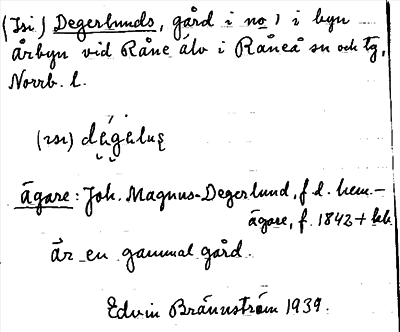 (Isi) Degerlunds, gård i no 1 i byn
Årbyn vid Råne älv i Råneå sn och tg,
Norrb. l.
ägare: Joh. Magnus-Degerlund, f d. hem.-
ägare, f. 1842 +
Är en gammal gård.
Edvin Brännström 1939.